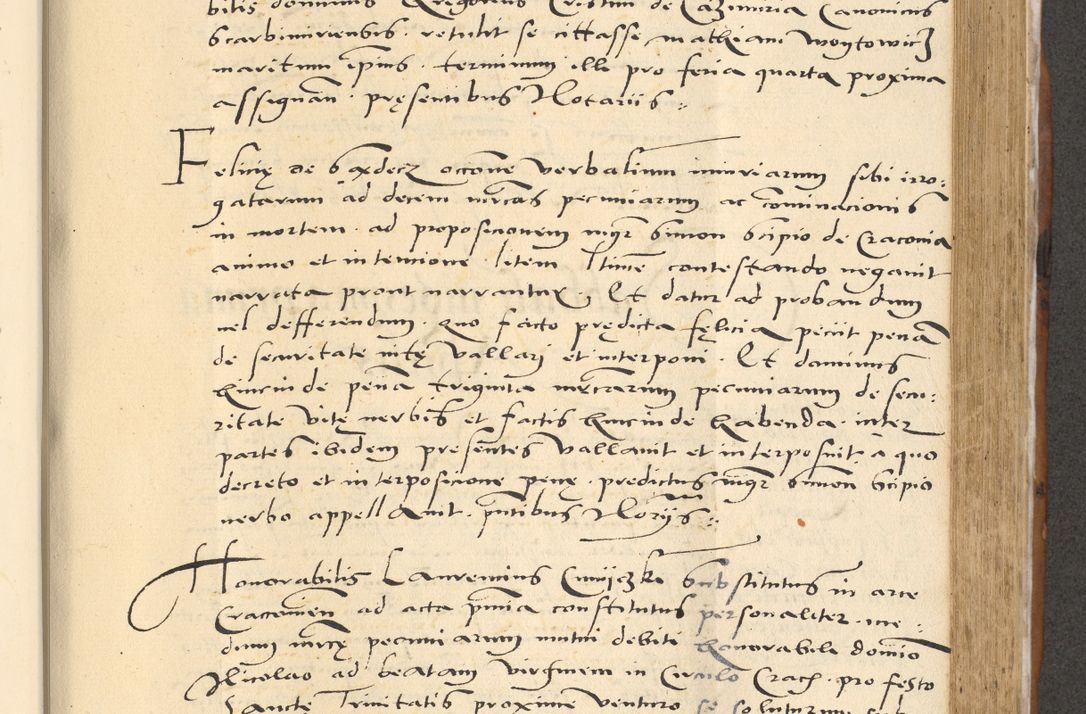 bilis dominus Gregorius Cristini de Cazimiria Canonicus
Scarbimiriensis retulit se cittasse Mathiam Woytowicz
maritum ipsius. terminum illi pro feria quarta proxima
assignan. pręsentibus Notariis.
Felicię de accone verbalium iniuriarum sibi irro:
gatarum ad decem mrcas pecuniarum ac cominacionis
in mortem. ad proposicionem mgr Simon Scipio de Craconia
animo et intencione litem ltime contestando negauit
narrata prout narrantur, Et datur ad probandum
uel defferendum. quo facto prędicta fęlicia peciit penam
de securitate vitę vallari et interponi. Et dominus
hincinde pena triginta mrcarum pecuniarum de secu:
ritate vitę uerbis et factis hincinde habenda. inter
partes ibidem presentes vallauit et interposuit a quo
decreto et interposicione penę. predictus mgr Simon Scipio
uerbo appellauit. pntibus Noriis.
Honorabilis Laurencius substitutus in arce
Cracouien ad acta pntia constitutus personaliter.
dum mrcę pecuniarum mutui debiti honorabili domino
Nicolao ad beatam virginem in Circulo Crach. pro festo
Sanctę Trinitatis proxime venturo se soluturum